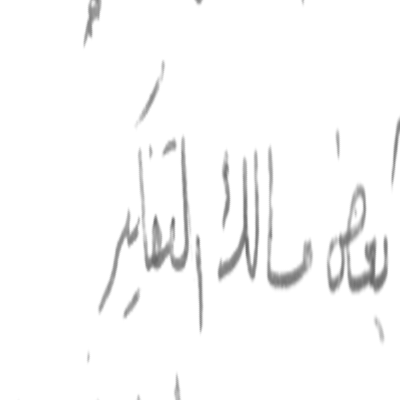 بعض مسالك التفكير